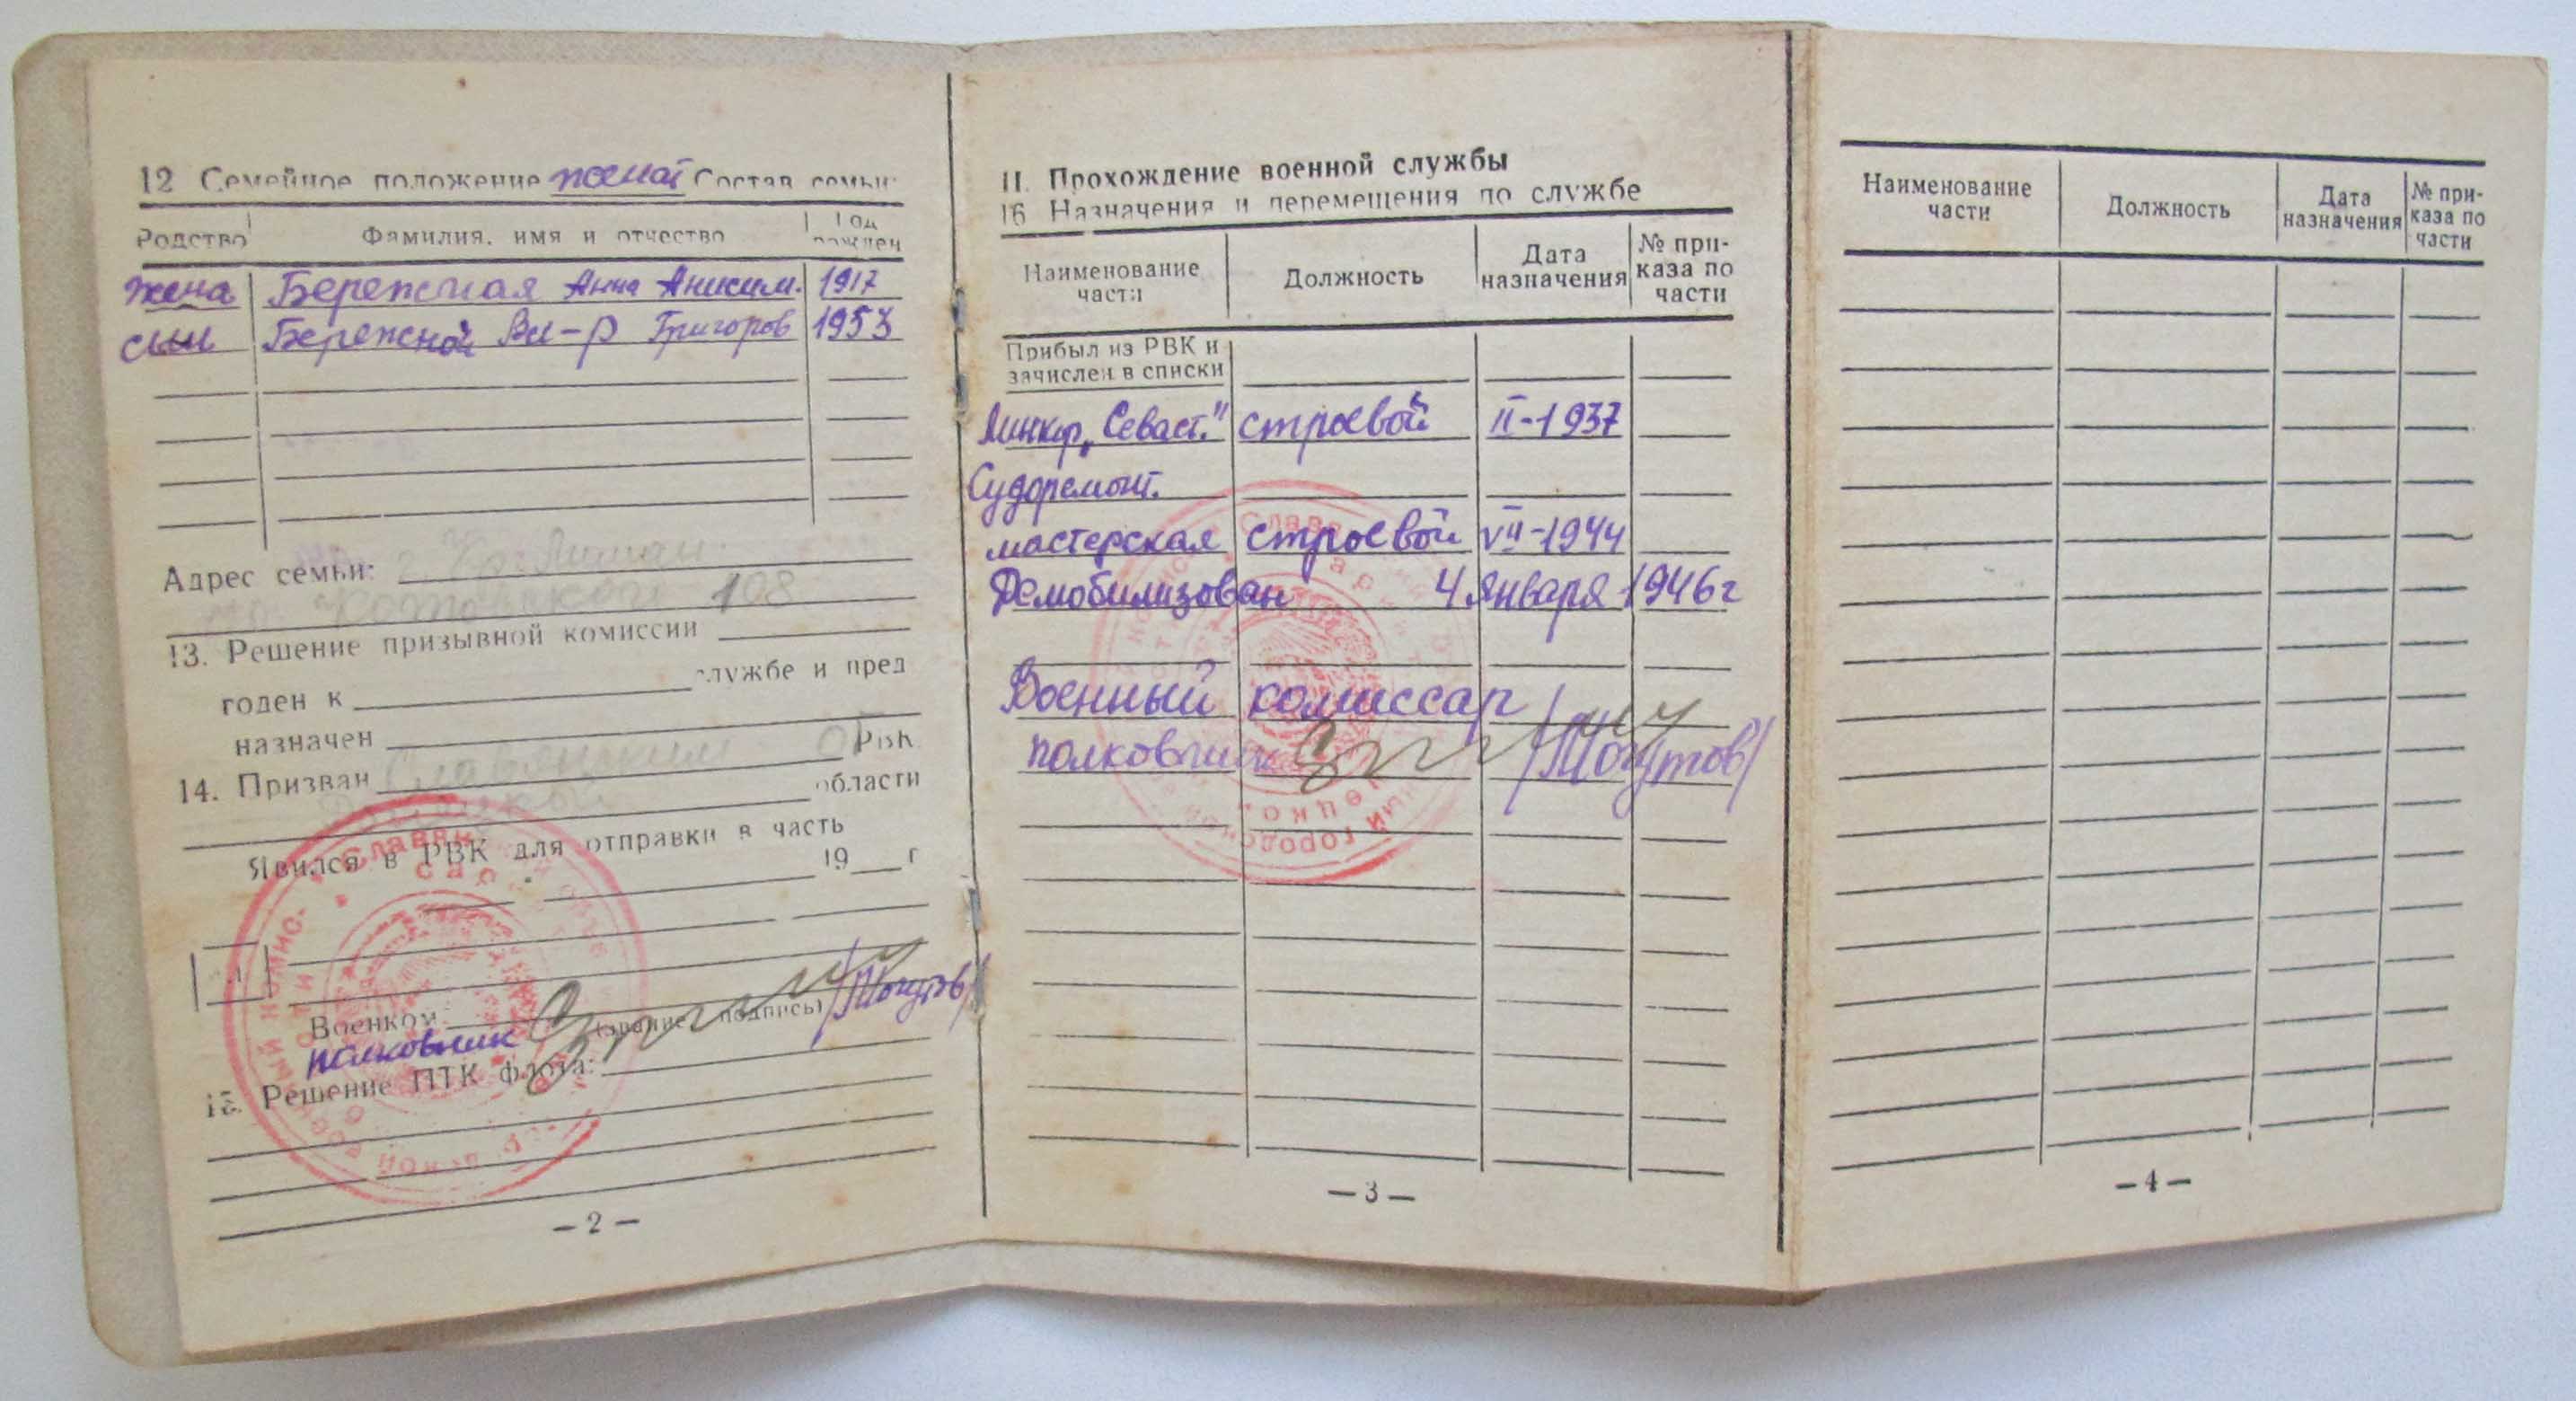 12 Семейное положение женат Состав семьи:
Родство Фамилия, имя и отчество Год рожден
жена Бережная Анна Аниким. 1917
сын Бережной Вл-р Григоров 1953
Адрес семьи: г. Кр. Лиман
108
13. Решение призывной комиссии
годен к службе и пред
назначен
14. Призван Славянским РВК
области
Явился в РВК для отправки в часть
19 г
Военком
(звание подпись)
полковник /Могутов/
15. Решение ПТК флота:
— 2 —
II. Прохождение военной службы
16 Назначения и перемещения по службе
Наименование части Должность Дата назначения № приказа по части
Прибыл из РВК и
зачислен в списки
Линкор „Севаст." строевой II-1937
Судоремонт.
мастерская строевой VII-1944
Демобилизован 4 января 1946 г
Военный комиссар
полковник /Могутов/
— 3 —
Наименование части Должность Дата назначения № при-каза по части
— 4 —